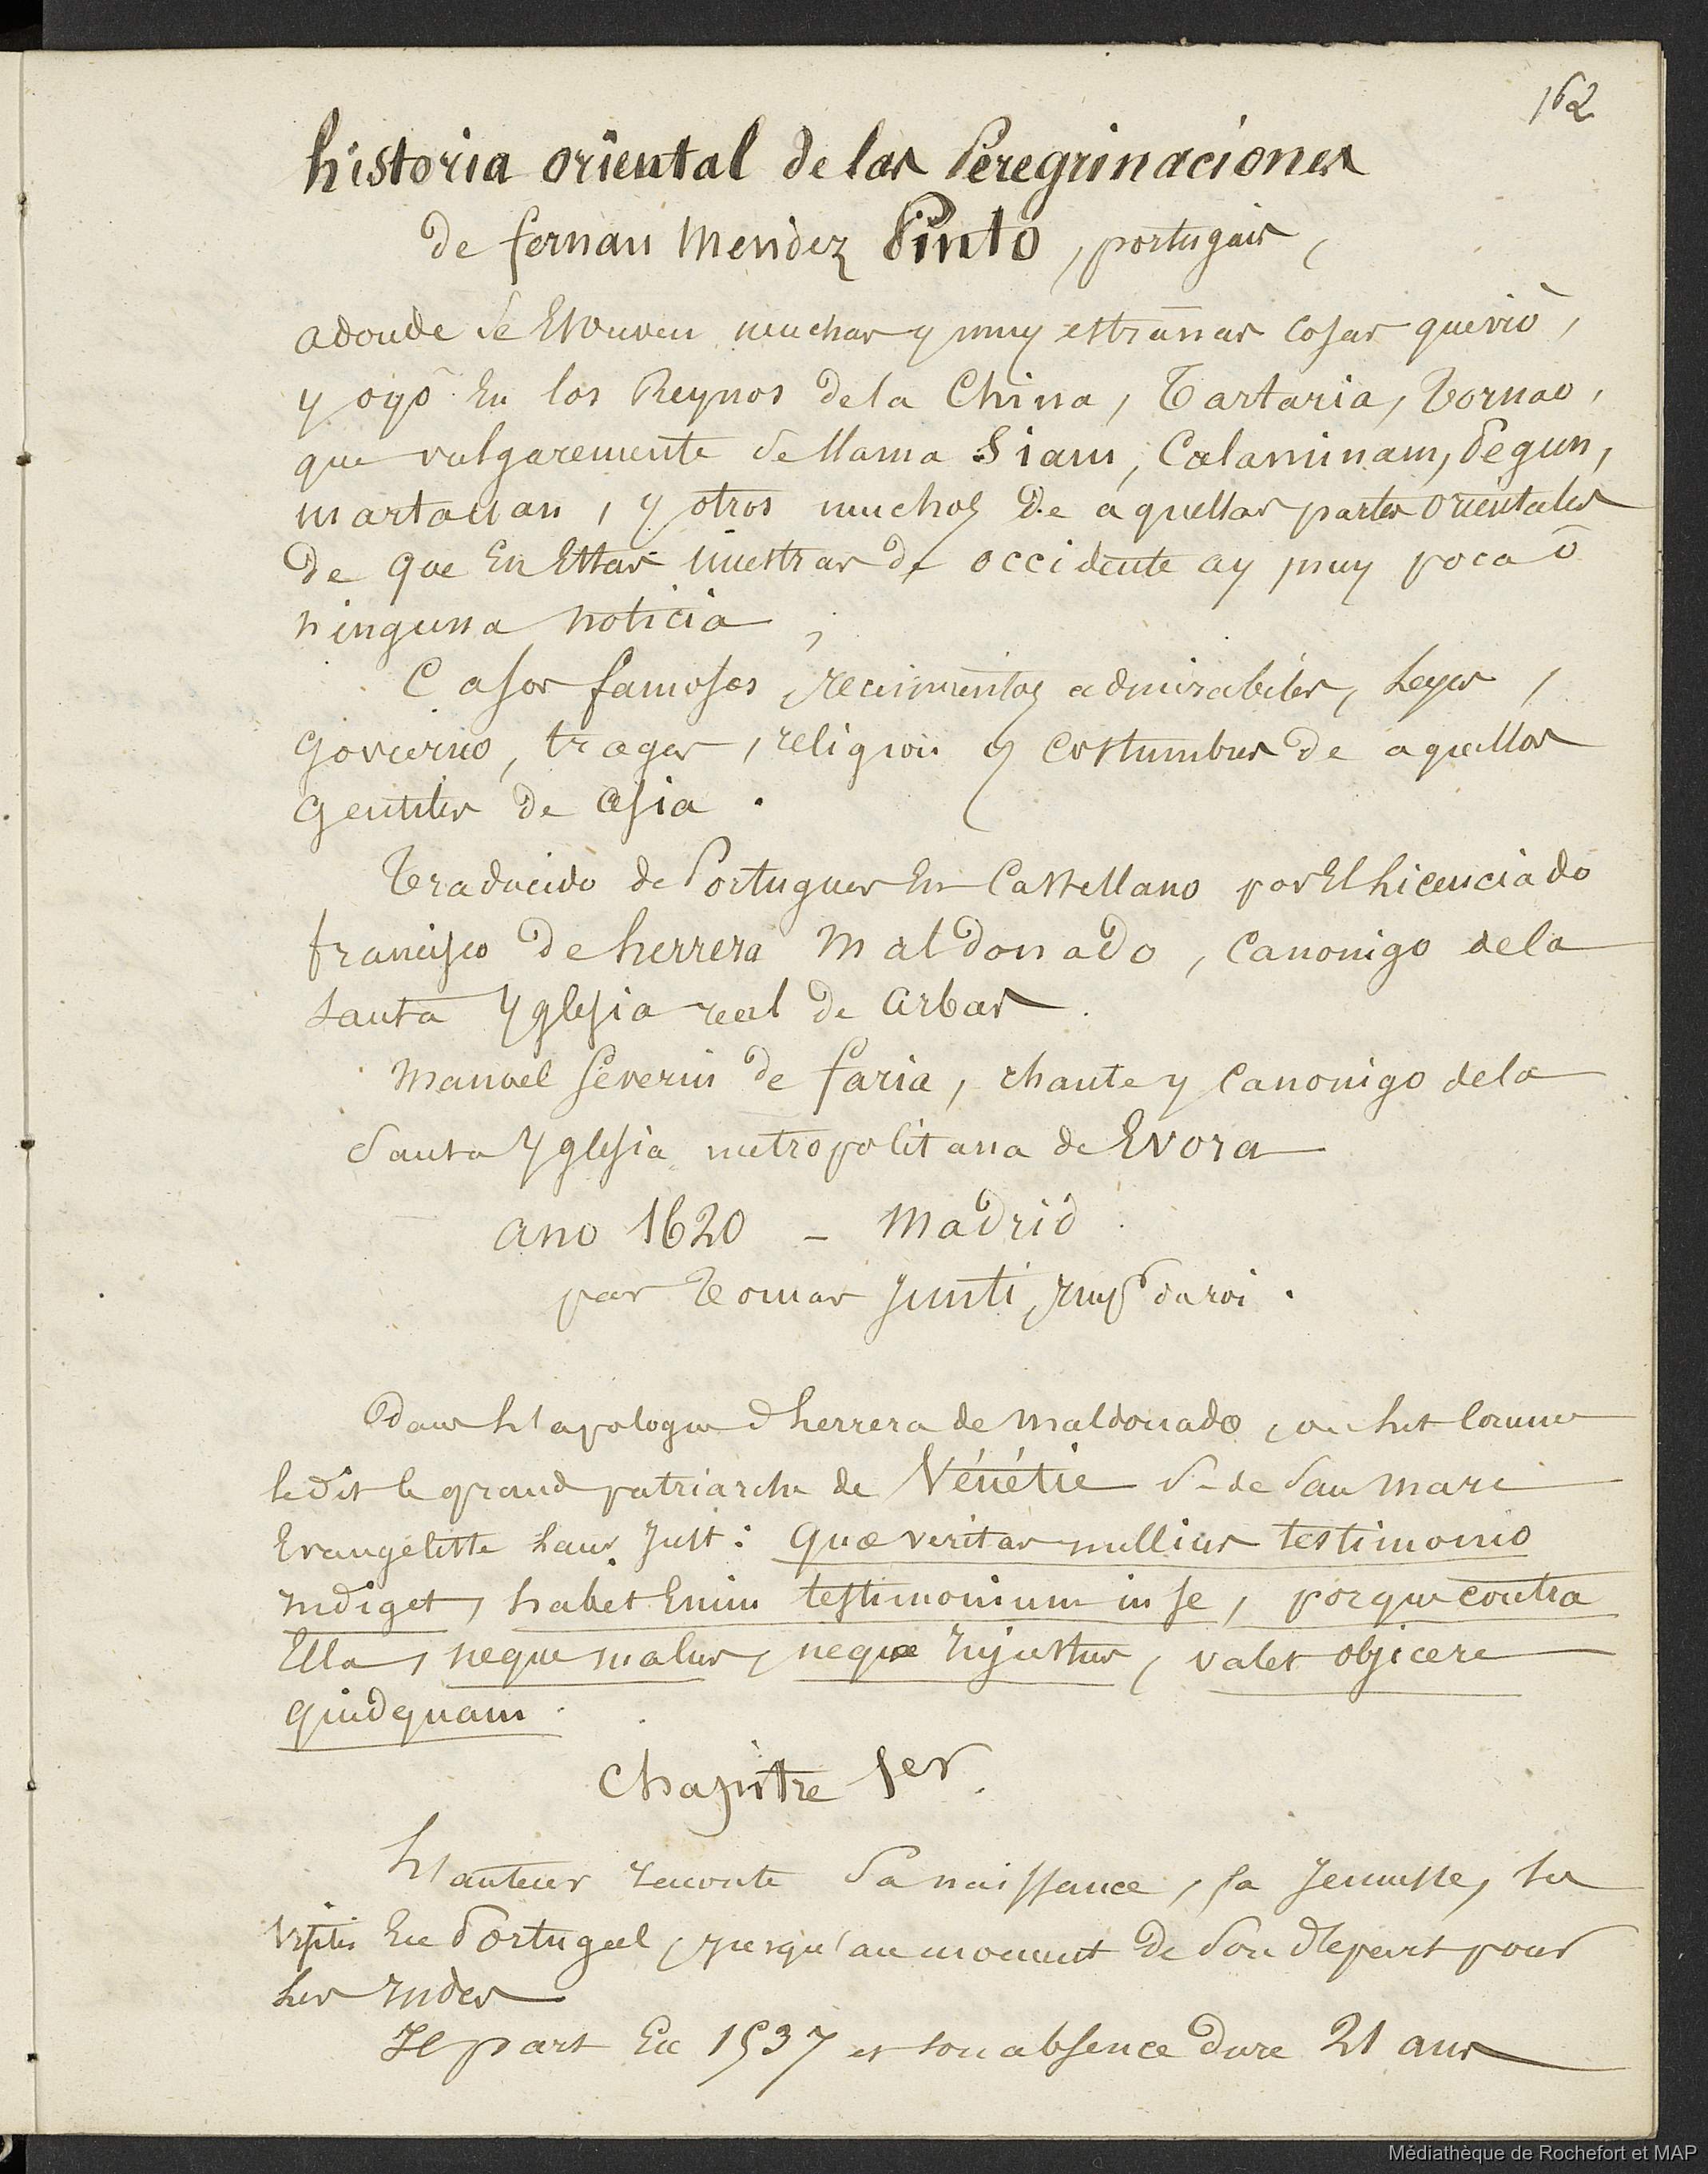 162
historia oriental de las Peregrinaciones
de fernan Mendez Pinto, portugais,
adonde se Escriven muchas y muy estrañas cosas que viò,
y oyò En los Reynos de la China, Tartaria, Sornao,
que vulgaremente se llama Siam, Calaminam, Pegun,
martauan, y otros muchos de aquellas partes orientales
de que En Estas nuestras de occidente ay muy poca ò
ninguna noticia,
Casos famosos, admirabiles, Leyes,
govierno, trages, religion y costumbres de aquellos
gentiles de asia.
Traducido de Portugues En Castellano por El Licenciado
francisco de herrera Maldonado, Canonigo de la
Santa Yglesia real de arbas.
Manuel Severin de faria, chante y Canonigo de la
Santa Yglesia metropolitana de Evora
ano 1620 - Madrid
par Tomas Junti, Impr du roi.
Dans L'apologie d herrera de Maldonado, on lit Comme
le dit le grand patriarche de Vénétie S. de San Marc
Evangeliste Laur. Just: quæ veritas nullius testimonio
indiget, habet Enim testimonium in se, porque contra
Ella, neque malus, neque Injustus, valet objicere
quidquam.
Chapitre 1er.
L'auteur raconte Sa naissance, sa Jeunesse, Ses
visites En Portugal, jusqu'au moment de Son départ pour
Les Indes
Il part En 1537 et son absence dure 21 ans
Médiathèque de Rochefort et MAP